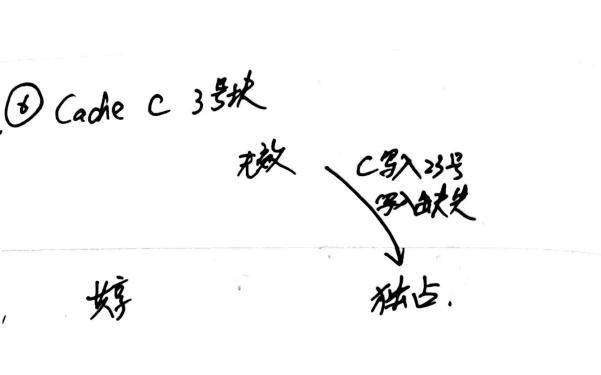 ⑥ Cache C 3号块
无效
C写入23号
写入缺失
共享
独占.